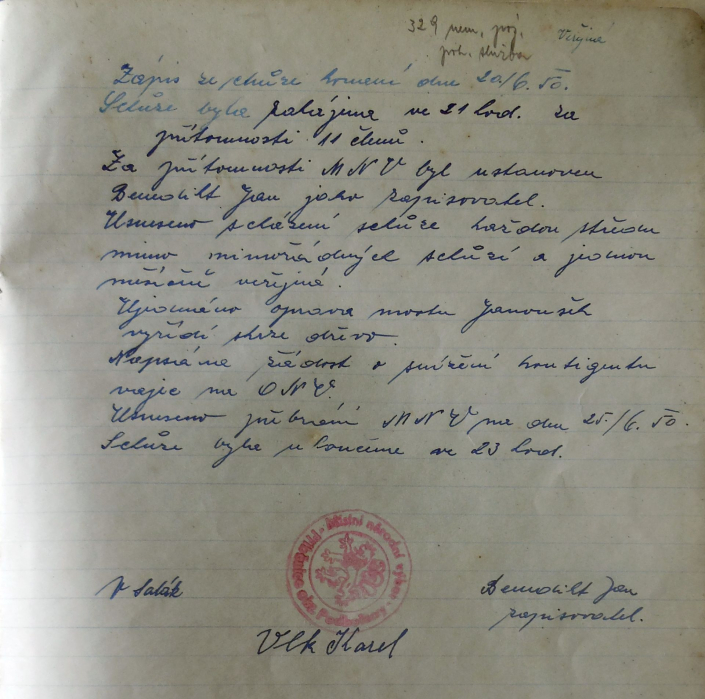 329 nem. poj. Veřejná
poh. služba
Zápis ze schůze konení dne 20/6. 50.
Schůze byla zahájena ve 21 hod. za
přítomnosti 11 členů.
Za přítomnosti MNV byl ustanoven
Benedikt Jan jako zapisovatel.
Usneseno scházení schůze každou středu
mimo mimořádných schůzí a jednou
měsíčně veřejná.
Ujednáno oprava mostu Janoušek
vyřídí skrze dřevo.
Napsána žádost o snížení kontigentu
vajec na ONV.
Usneseno přibrání MNV na den 25./6. 50.
Schůze byla ukončena ve 23 hod.
Místní národní výbor
okr. Podbořany
V Salák
Benedikt Jan
zapisovatel.
Vlk Karel